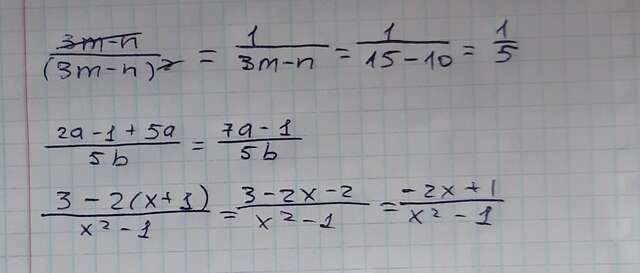 (3m-n)/(3m-n)² = 1/(3m-n) = 1/(15-10) = 1/5
(2a-1+5a)/5b = (7a-1)/5b
(3-2(x+1))/(x²-1) = (3-2x-2)/(x²-1) = (-2x+1)/(x²-1)